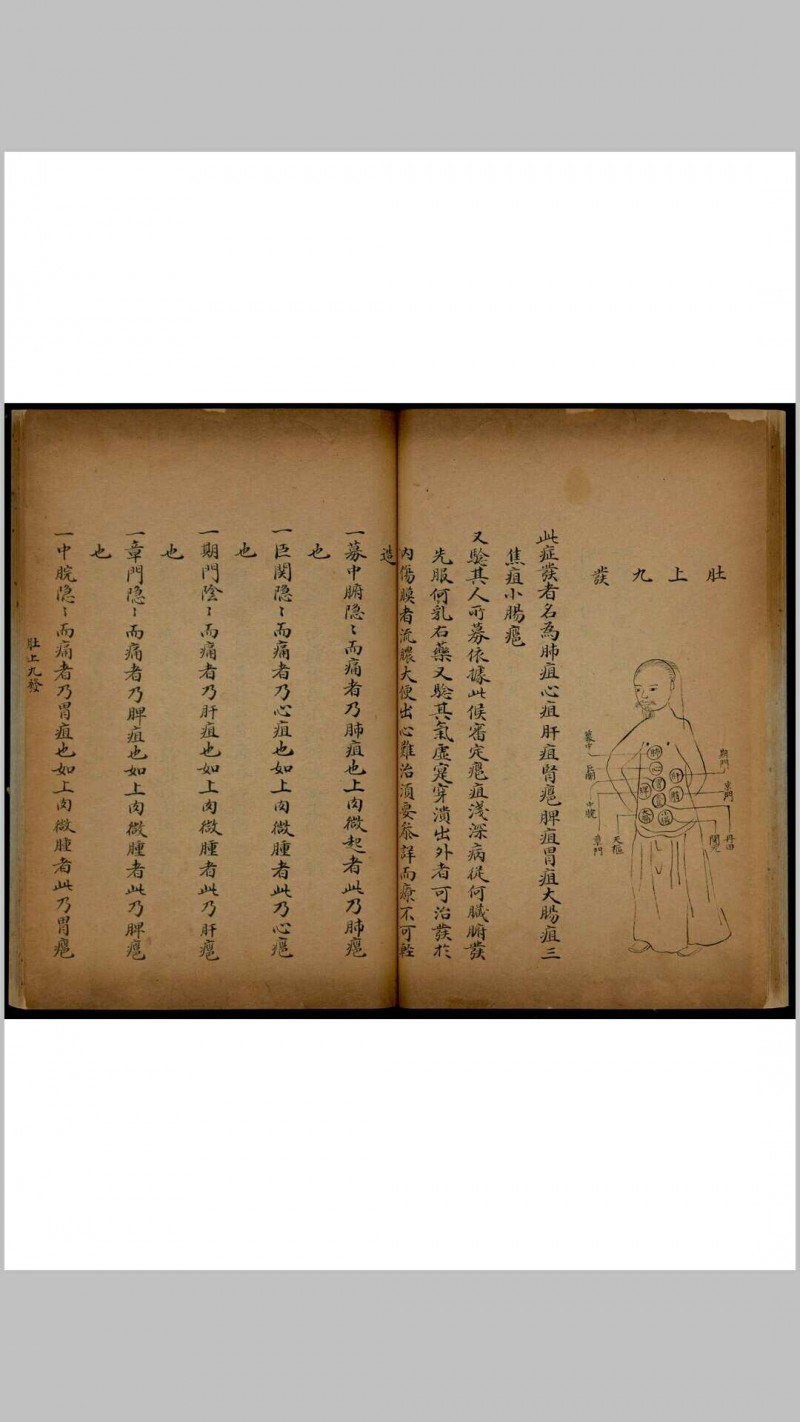 肚上九發
募中
巨闕
中脘
章門
天樞
期門
章門
丹田
關元
肺
心
肝
脾
此症發者名為肺疽心疽肝疽腎癰脾疽胃疽大腸疽三
焦疽小腸癰
又驗其人所募依據此候審定癰疽淺深病從何臟腑發
先服何乳石藥又驗其氣虛寔穿潰出外者可治發於
內傷膜者流膿大便出必難治須要參詳而療不可輕
造
一募中腑隐〻而痛者乃肺疽也上肉微起者此乃肺癰
也
一巨関隐〻而痛者乃心疽也如上肉微腫者此乃心癰
也
一期門陰〻而痛者乃肝疽也如上肉微腫者此乃肝癰
也
一章門隐〻而痛者乃脾疽也如上肉微腫者此乃脾癰
也
一中脘隐〻而痛者乃胃疽也如上肉微腫者此乃胃癰
肚上九發